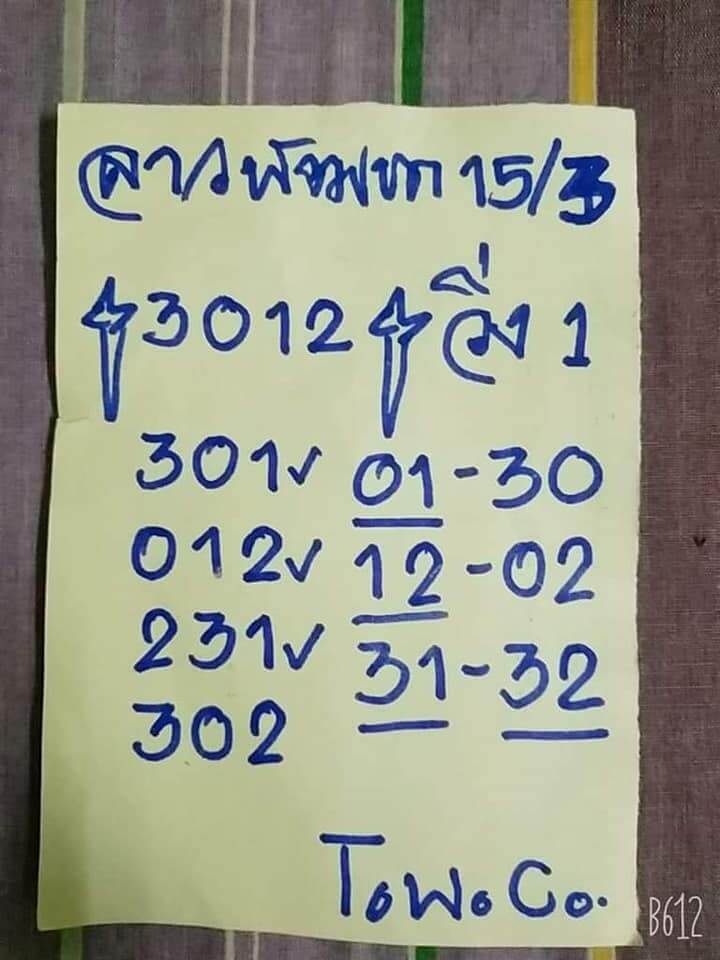 ลาวพัฒนา 15/3
3012 วิ่ง 1
301✓ 01-30
012✓ 12-02
231✓ 31-32
302
T.W.Co.
B612